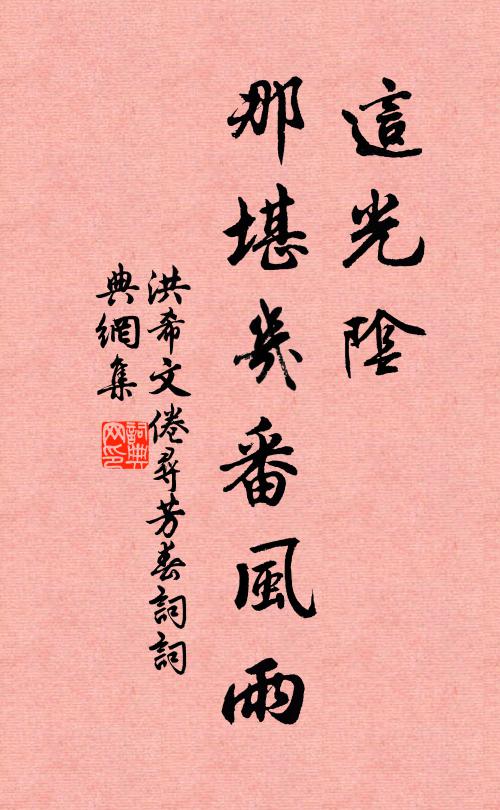 這光陰
那堪幾番風雨
洪希文倦尋芳春詞詞
典網集
詞典
网印